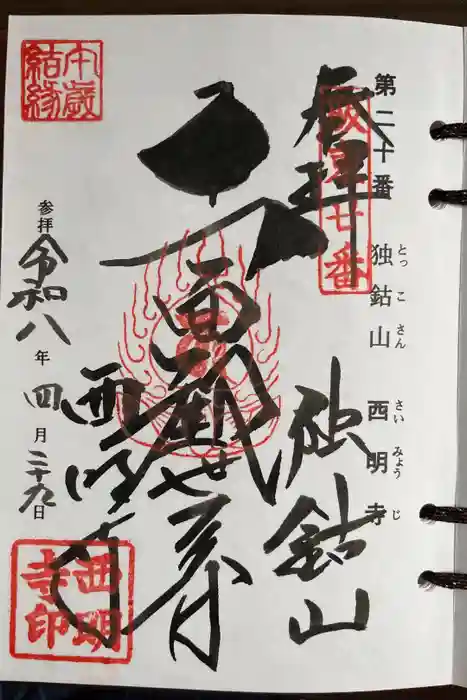 第二十番 独鈷山 西明寺
とっこさん さいみょうじ
坂東廿番
奉拝
独鈷山
十一面観世音
西明寺
午歳結縁
参拝 令和八年四月二十九日
西明寺印